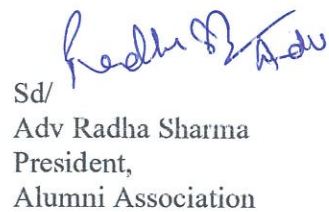 Radha Adv
Sd/
Adv Radha Sharma
President,
Alumni Association